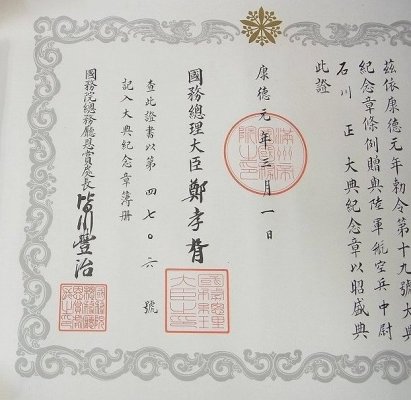 茲依康德元年勅令第十九號大典
紀念章條例贈與陸軍航空兵中尉
石川正大典紀念章以昭盛典
此證
康德元年三月一日
國務總理大臣鄭孝胥
查此證書以第四七〇六號
記入大典紀念章簿冊
國務院總務廳恩賞處長皆川豐治